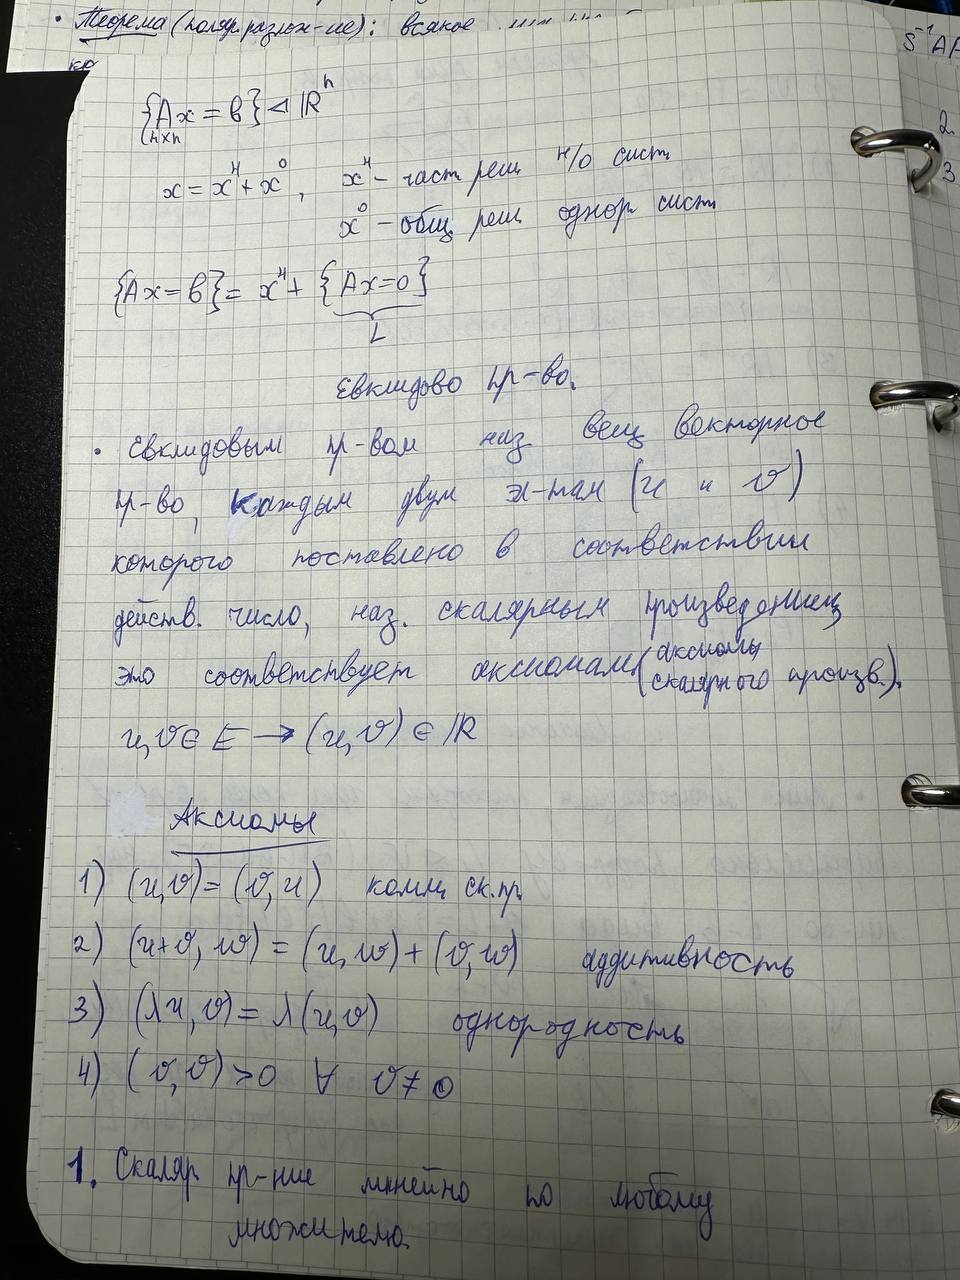 • Теорема (поляр. разлож-ие): всякое
S⁻¹AP
2.
3
{Ax = b} ⊲ ℝⁿ
n×n
x = xᴴ + x⁰, xᴴ – част реш н/о сист
x⁰ – общ реш однор сист
{Ax = b} = xᴴ + {Ax = 0}
L
Евклидово пр-во.
• Евклидовым пр-вом наз вещ векторное
пр-во, каждым двум эл-там (u и v)
которого поставлено в соответствии
действ. число, наз. скалярным произведением
это соответствует аксиомам (аксиомы
скалярного произв.).
u, v ∈ E → (u, v) ∈ ℝ
Аксиомы
1) (u, v) = (v, u) комм. ск. пр.
2) (u+v, w) = (u, w) + (v, w) аддитивность
3) (λu, v) = λ(u, v) однородность
4) (v, v) > 0 ∀ v ≠ 0
1. Скаляр пр-ние линейно по любому
множителю.